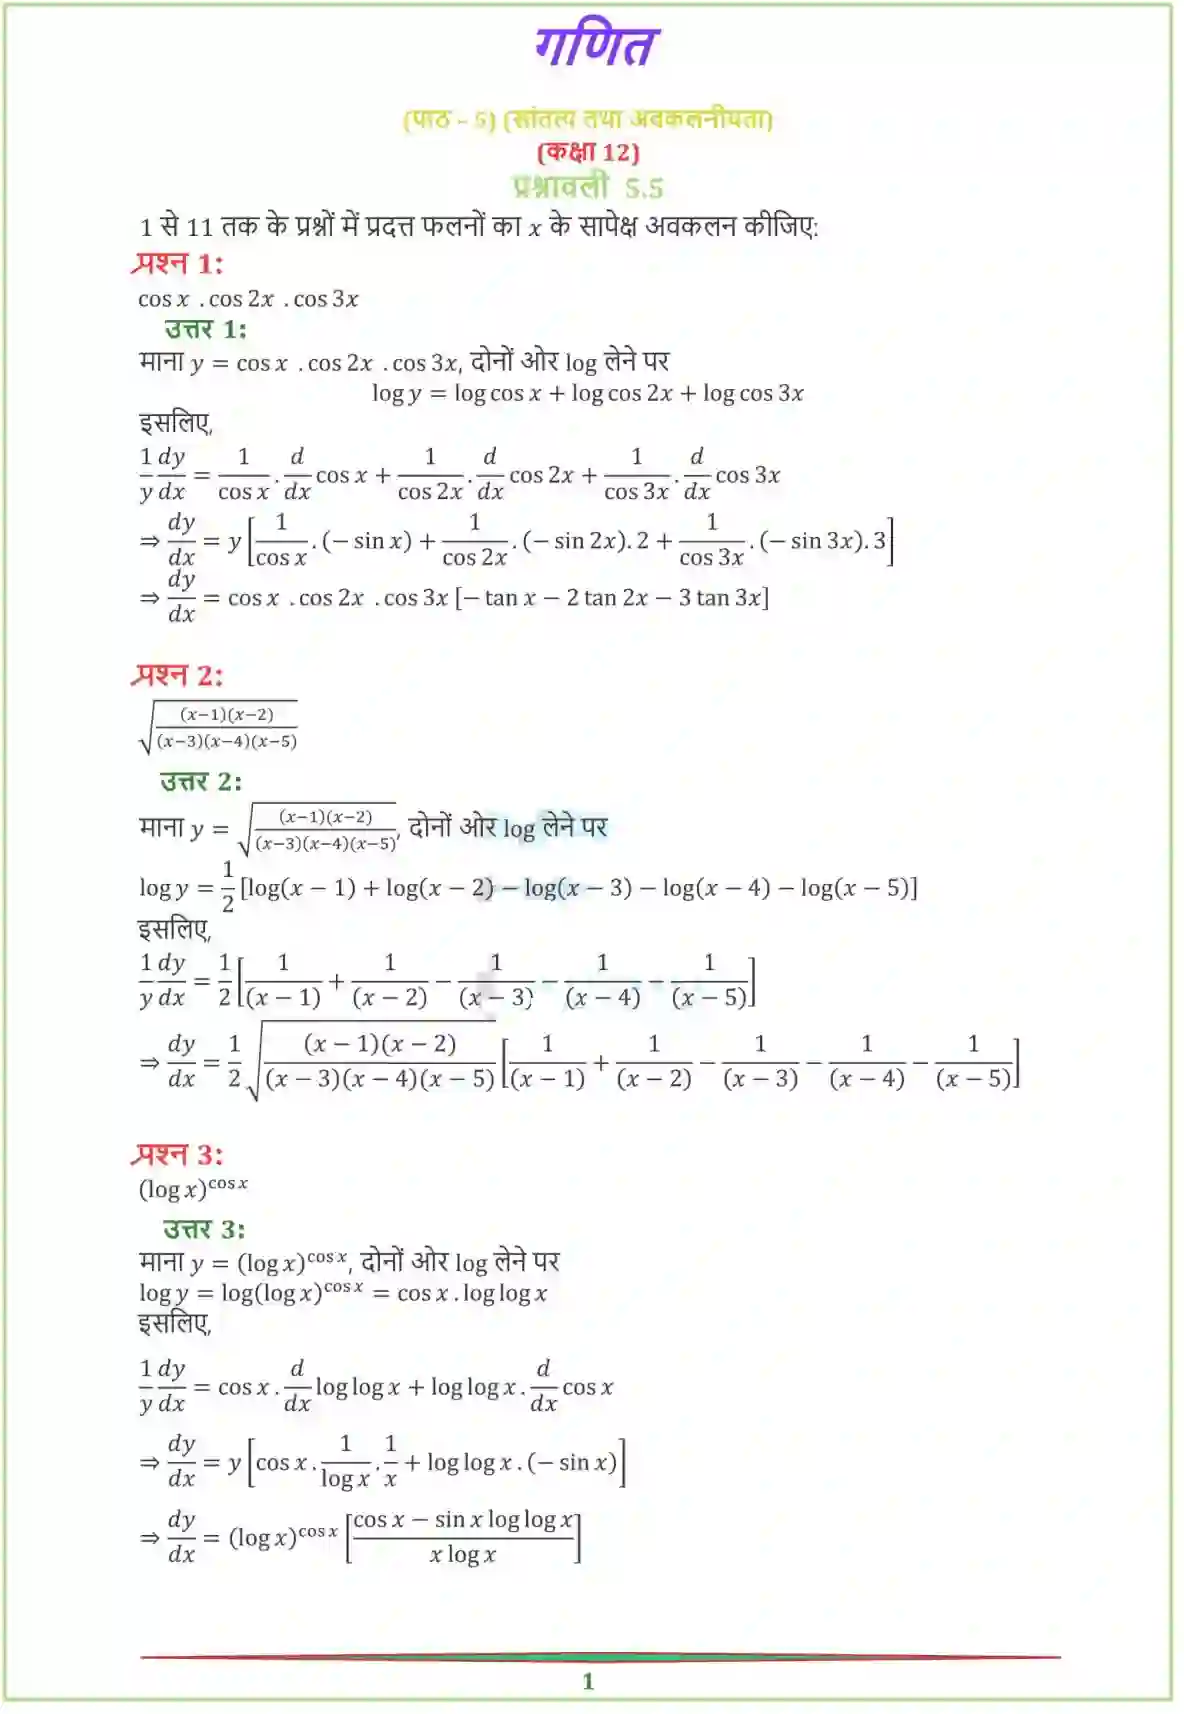 गणित
(पाठ – 5) (सांतत्य तथा अवकलनीयता)
(कक्षा 12)
प्रश्नावली 5.5
1 से 11 तक के प्रश्नों में प्रदत्त फलनों का x के सापेक्ष अवकलन कीजिए:
प्रश्न 1:
cos x . cos 2x . cos 3x
उत्तर 1:
माना y = cos x . cos 2x . cos 3x, दोनों ओर log लेने पर
log y = log cos x + log cos 2x + log cos 3x
इसलिए,
1/y dy/dx = 1/cos x . d/dx cos x + 1/cos 2x . d/dx cos 2x + 1/cos 3x . d/dx cos 3x
⇒ dy/dx = y [1/cos x . (− sin x) + 1/cos 2x . (− sin 2x). 2 + 1/cos 3x . (− sin 3x). 3]
⇒ dy/dx = cos x . cos 2x . cos 3x [− tan x − 2 tan 2x − 3 tan 3x]
प्रश्न 2:
√((x−1)(x−2)/(x−3)(x−4)(x−5))
उत्तर 2:
माना y = √((x−1)(x−2)/(x−3)(x−4)(x−5)), दोनों ओर log लेने पर
log y = 1/2 [log(x − 1) + log(x − 2) − log(x − 3) − log(x − 4) − log(x − 5)]
इसलिए,
1/y dy/dx = 1/2 [1/(x − 1) + 1/(x − 2) − 1/(x − 3) − 1/(x − 4) − 1/(x − 5)]
⇒ dy/dx = 1/2 √((x − 1)(x − 2)/(x − 3)(x − 4)(x − 5)) [1/(x − 1) + 1/(x − 2) − 1/(x − 3) − 1/(x − 4) − 1/(x − 5)]
प्रश्न 3:
(log x)^cos x
उत्तर 3:
माना y = (log x)^cos x, दोनों ओर log लेने पर
log y = log(log x)^cos x = cos x . log log x
इसलिए,
1/y dy/dx = cos x . d/dx log log x + log log x . d/dx cos x
⇒ dy/dx = y [cos x . 1/log x . 1/x + log log x . (− sin x)]
⇒ dy/dx = (log x)^cos x [cos x − sin x log log x/x log x]
1